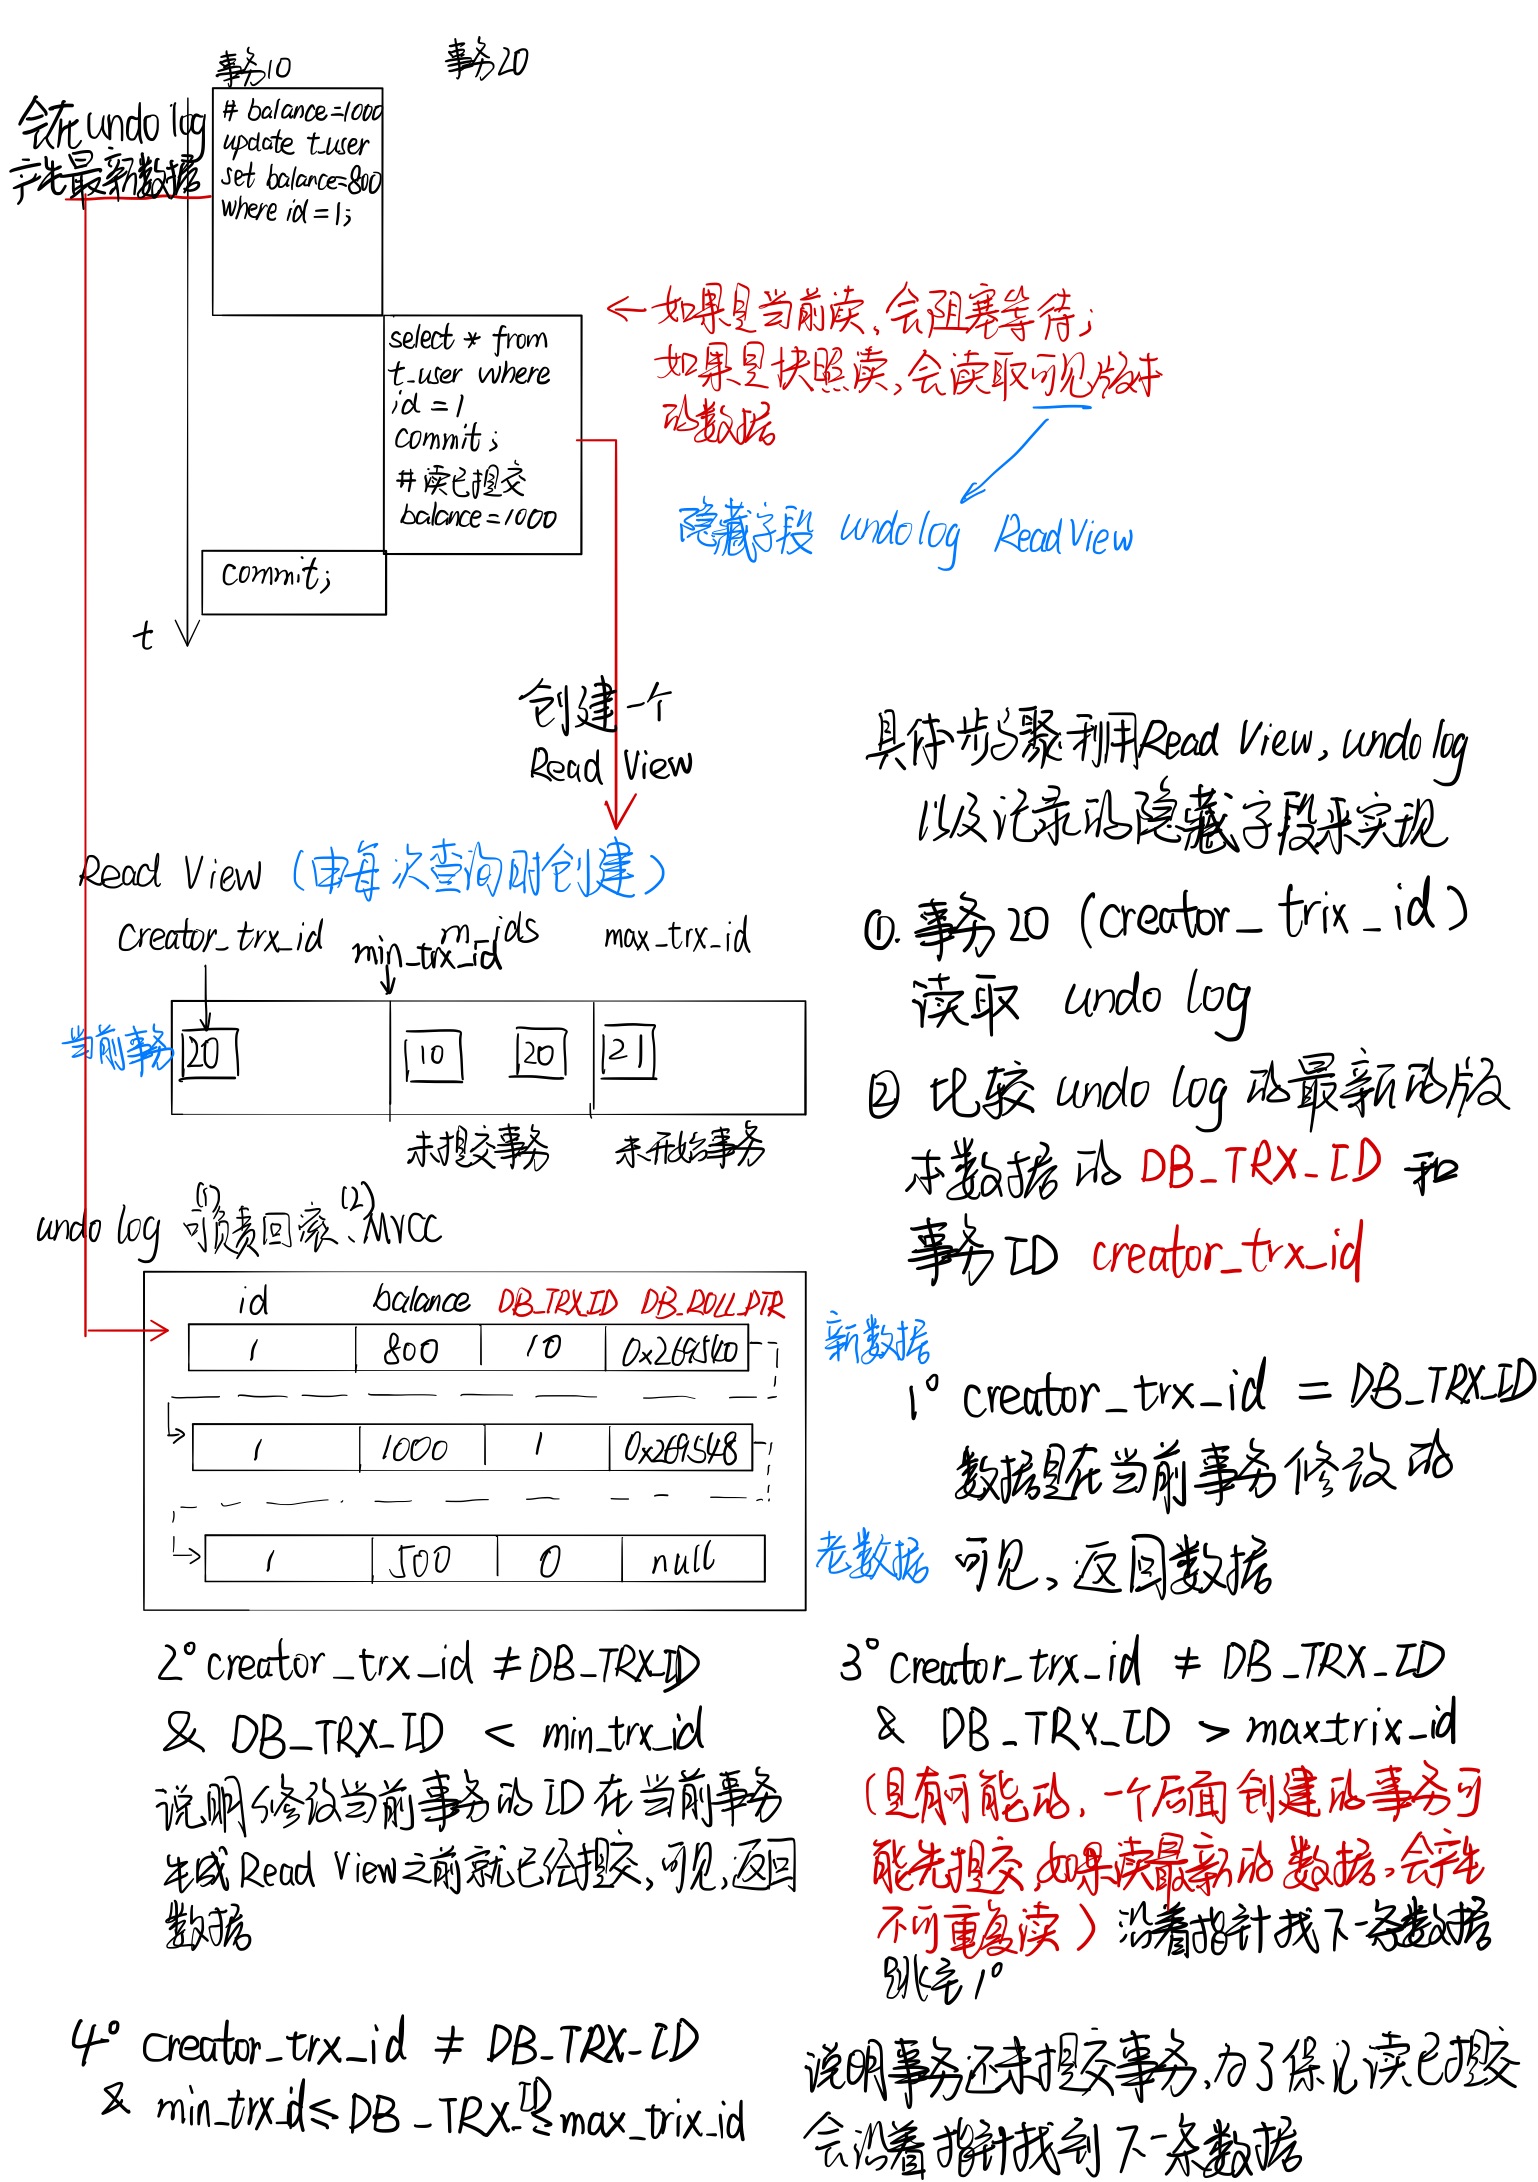 事务10
事务20
会在undo log
产生最新数据
# balance=1000
update t_user
set balance=800
where id=1;
select * from
t_user where
id=1
commit;
#读已提交
balance=1000
commit;
t
如果是当前读,会阻塞等待;
如果是快照读,会读取可见版本
的数据
隐藏字段 undo log ReadView
创建一个
Read View
Read View (由每次查询时创建)
creator_trx_id
min_trx_id
m_ids
max_trx_id
当前事务
20
10
20
21
未提交事务
未开始事务
undo log 可负责(1)回滚、(2)MVCC
id balance DB_TRX_ID DB_ROLL_PTR
1 800 10 0x269540
1 1000 1 0x269548
1 500 0 null
新数据
老数据
具体步骤利用Read View,undo log
以及记录的隐藏字段来实现
①.事务20(creator_trix_id)
读取 undo log
② 比较 undo log 的最新的版
本数据的 DB_TRX_ID 和
事务ID creator_trx_id
1° creator_trx_id = DB_TRX_ID
数据是在当前事务修改的
可见,返回数据
2° creator_trx_id ≠ DB_TRX_ID
& DB_TRX_ID < min_trx_id
说明修改当前事务的ID在当前事务
生成Read View之前就已经提交,可见,返回
数据
3° creator_trx_id ≠ DB_TRX_ID
& DB_TRX_ID > maxtrix_id
(是有可能的,一个后面创建的事务可
能先提交,如果读最新的数据,会产生
不可重复读)沿着指针找下一条数据
跳至1°
4° creator_trx_id ≠ DB_TRX_ID
& min_trx_id≤DB_TRX_ID≤max_trix_id
说明事务还未提交事务,为了保记读已提交
会沿着指针找到下一条数据